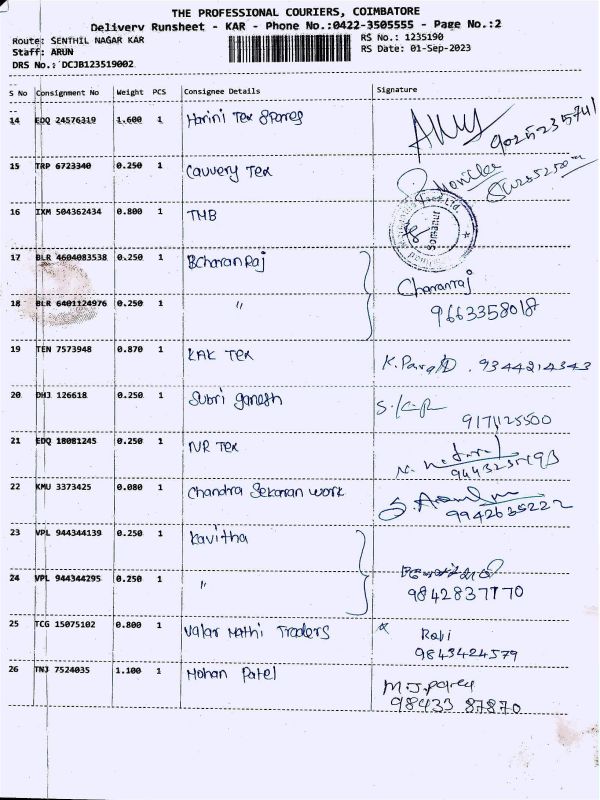 THE PROFESSIONAL COURIERS, COIMBATORE
Delivery Runsheet - KAR - Phone No.:0422-3505555 - Page No.:2
Route: SENTHIL NAGAR KAR
RS No.: 1235190
Staff: ARUN
RS Date: 01-Sep-2023
DRS No.: DCJB123519002
S No Consignment No Weight PCS Consignee Details Signature
14 EDQ 24576319 1.600 1 Harini Tex Spares 9025235741
15 TRP 6723340 0.250 1 Cauvery Tex Monicka
16 IXM 504362434 0.800 1 TMB Somanur
17 BLR 4604083538 0.250 1 B Charan Raj Charanraj
18 BLR 6401124976 0.250 1 " 9663358018
19 TEN 7573948 0.870 1 KAK Tex 9344214343
20 DHJ 126618 0.250 1 Subri ganesh 9171125500
21 EDQ 18081245 0.250 1 NR Tex
22 KMU 3373425 0.080 1 Chandra Sekaran work 9942635222
23 VPL 944344139 0.250 1 Kavitha
24 VPL 944344295 0.250 1 " 9842837770
25 TCG 15075102 0.800 1 Valar Mathi Traders Ravi
9843424579
26 TNJ 7524035 1.100 1 Mohan Patel M.J.
98433 87870